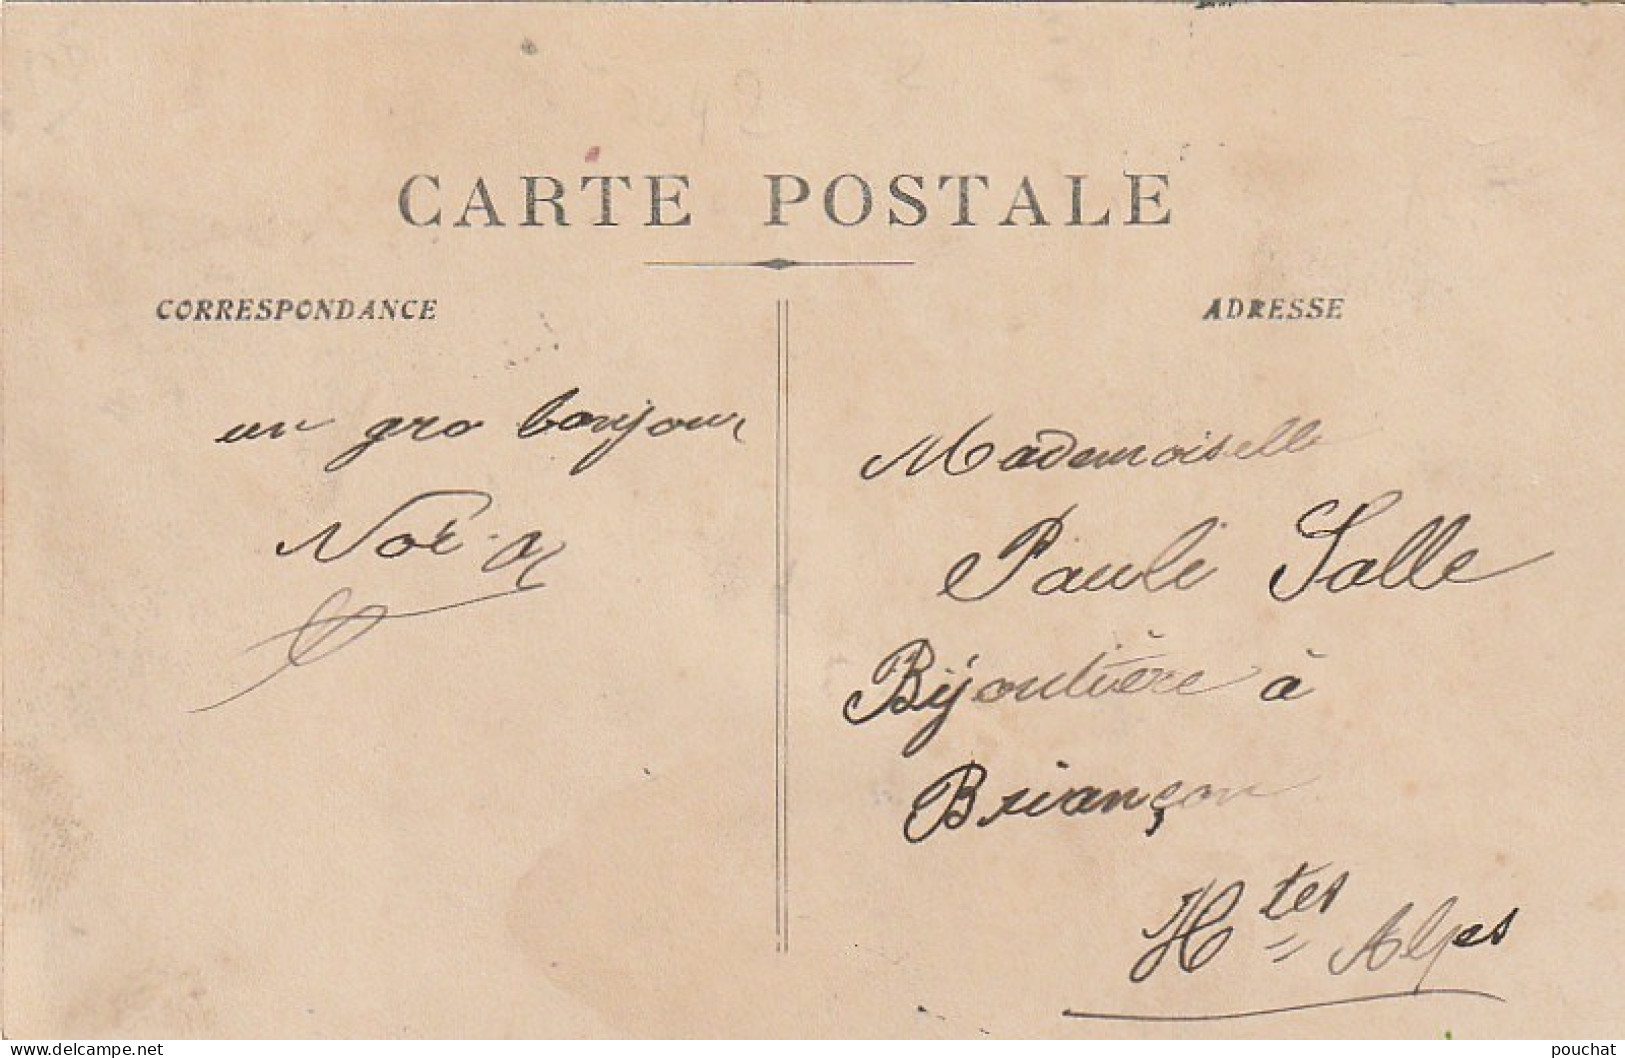 CARTE POSTALE
CORRESPONDANCE
ADRESSE
un gro bonjour
Mademoiselle
Pauli Salle
Bijoutière à
Briançon
Htes Alpes
www.delcampe.net
pouchat